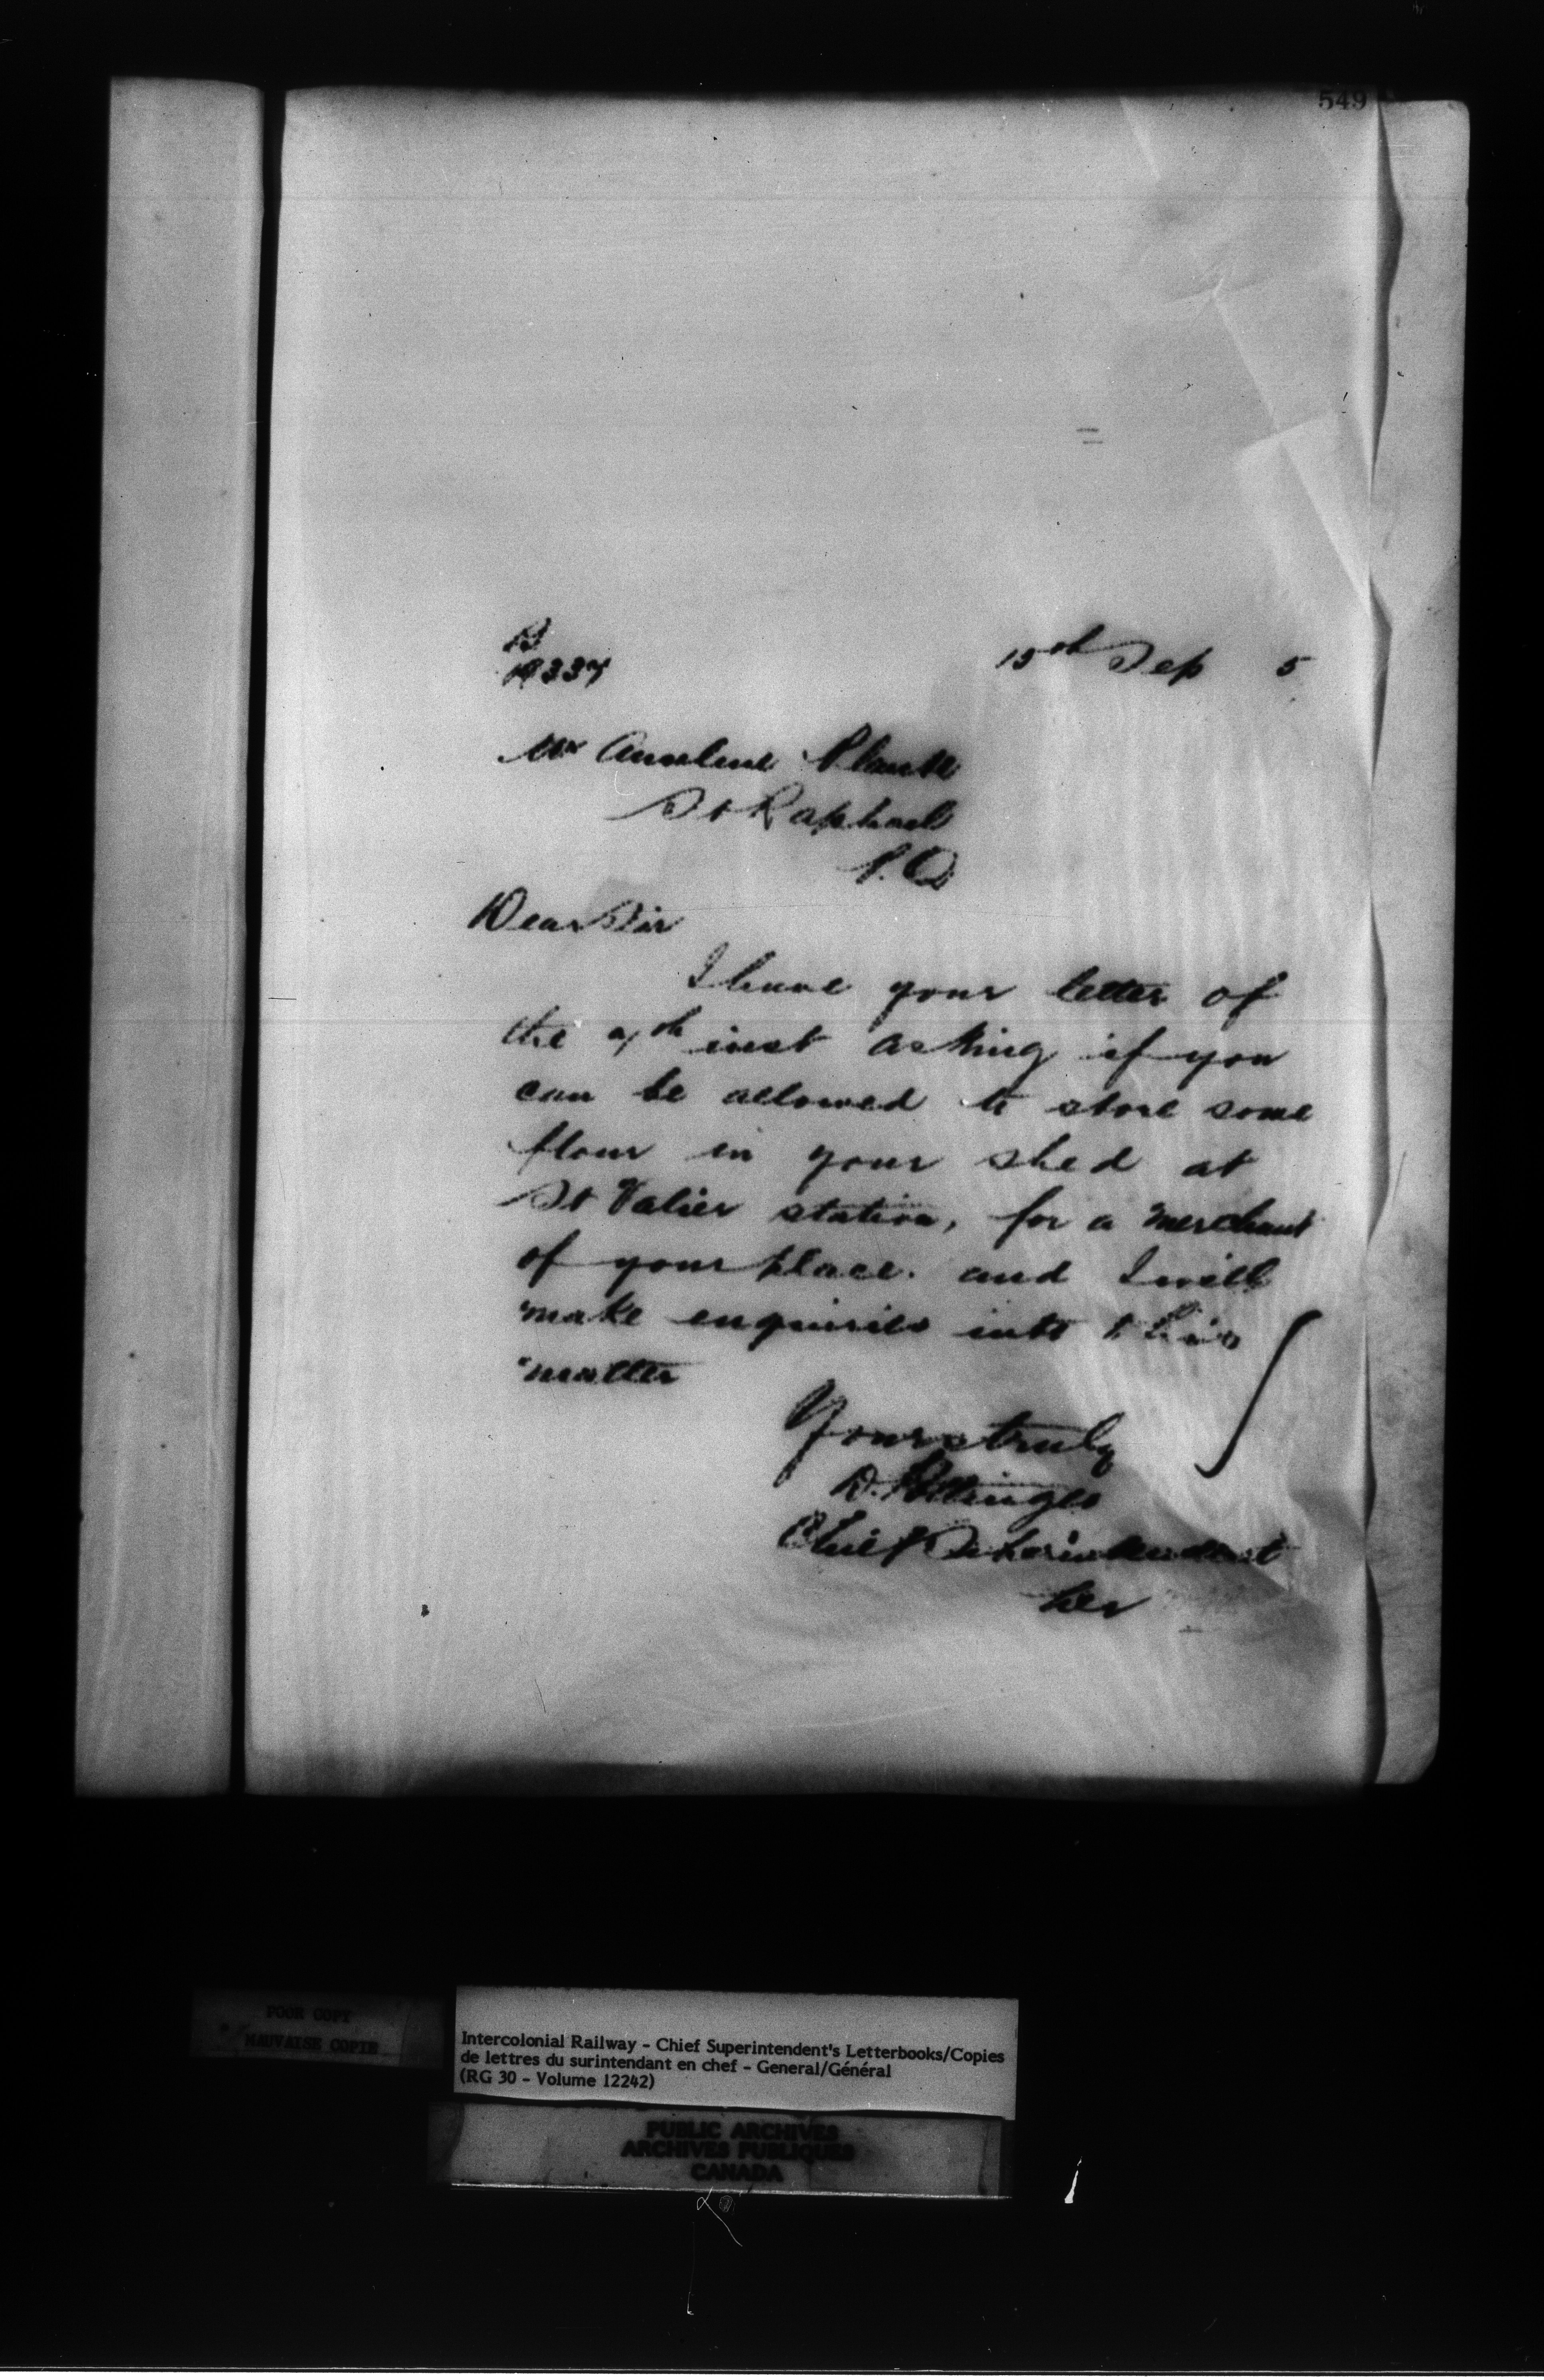 549
B
19337
15th Sep 5
Mr Anselme Plante
St Raphael
P.Q
Dear Sir
I have your letter of
the 9th inst asking if you
can be allowed to store some
flour in your shed at
St Valier station, for a merchant
of your place. and I will
make enquiries into this
matter
Yours truly
D. Pottinger
Chief Superintendent
POOR COPY
MAUVAISE COPIE
Intercolonial Railway - Chief Superintendent's Letterbooks/Copies
de lettres du surintendant en chef - General/Général
(RG 30 - Volume 12242)
PUBLIC ARCHIVES
ARCHIVES PUBLIQUES
CANADA